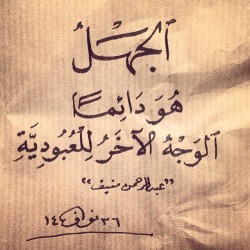 الجهلُ
هُوَ دَائِمًا
الوَجْهُ الآخَرُ لِلعُبُودِيَّةِ
"عبدالرحمن منيف"